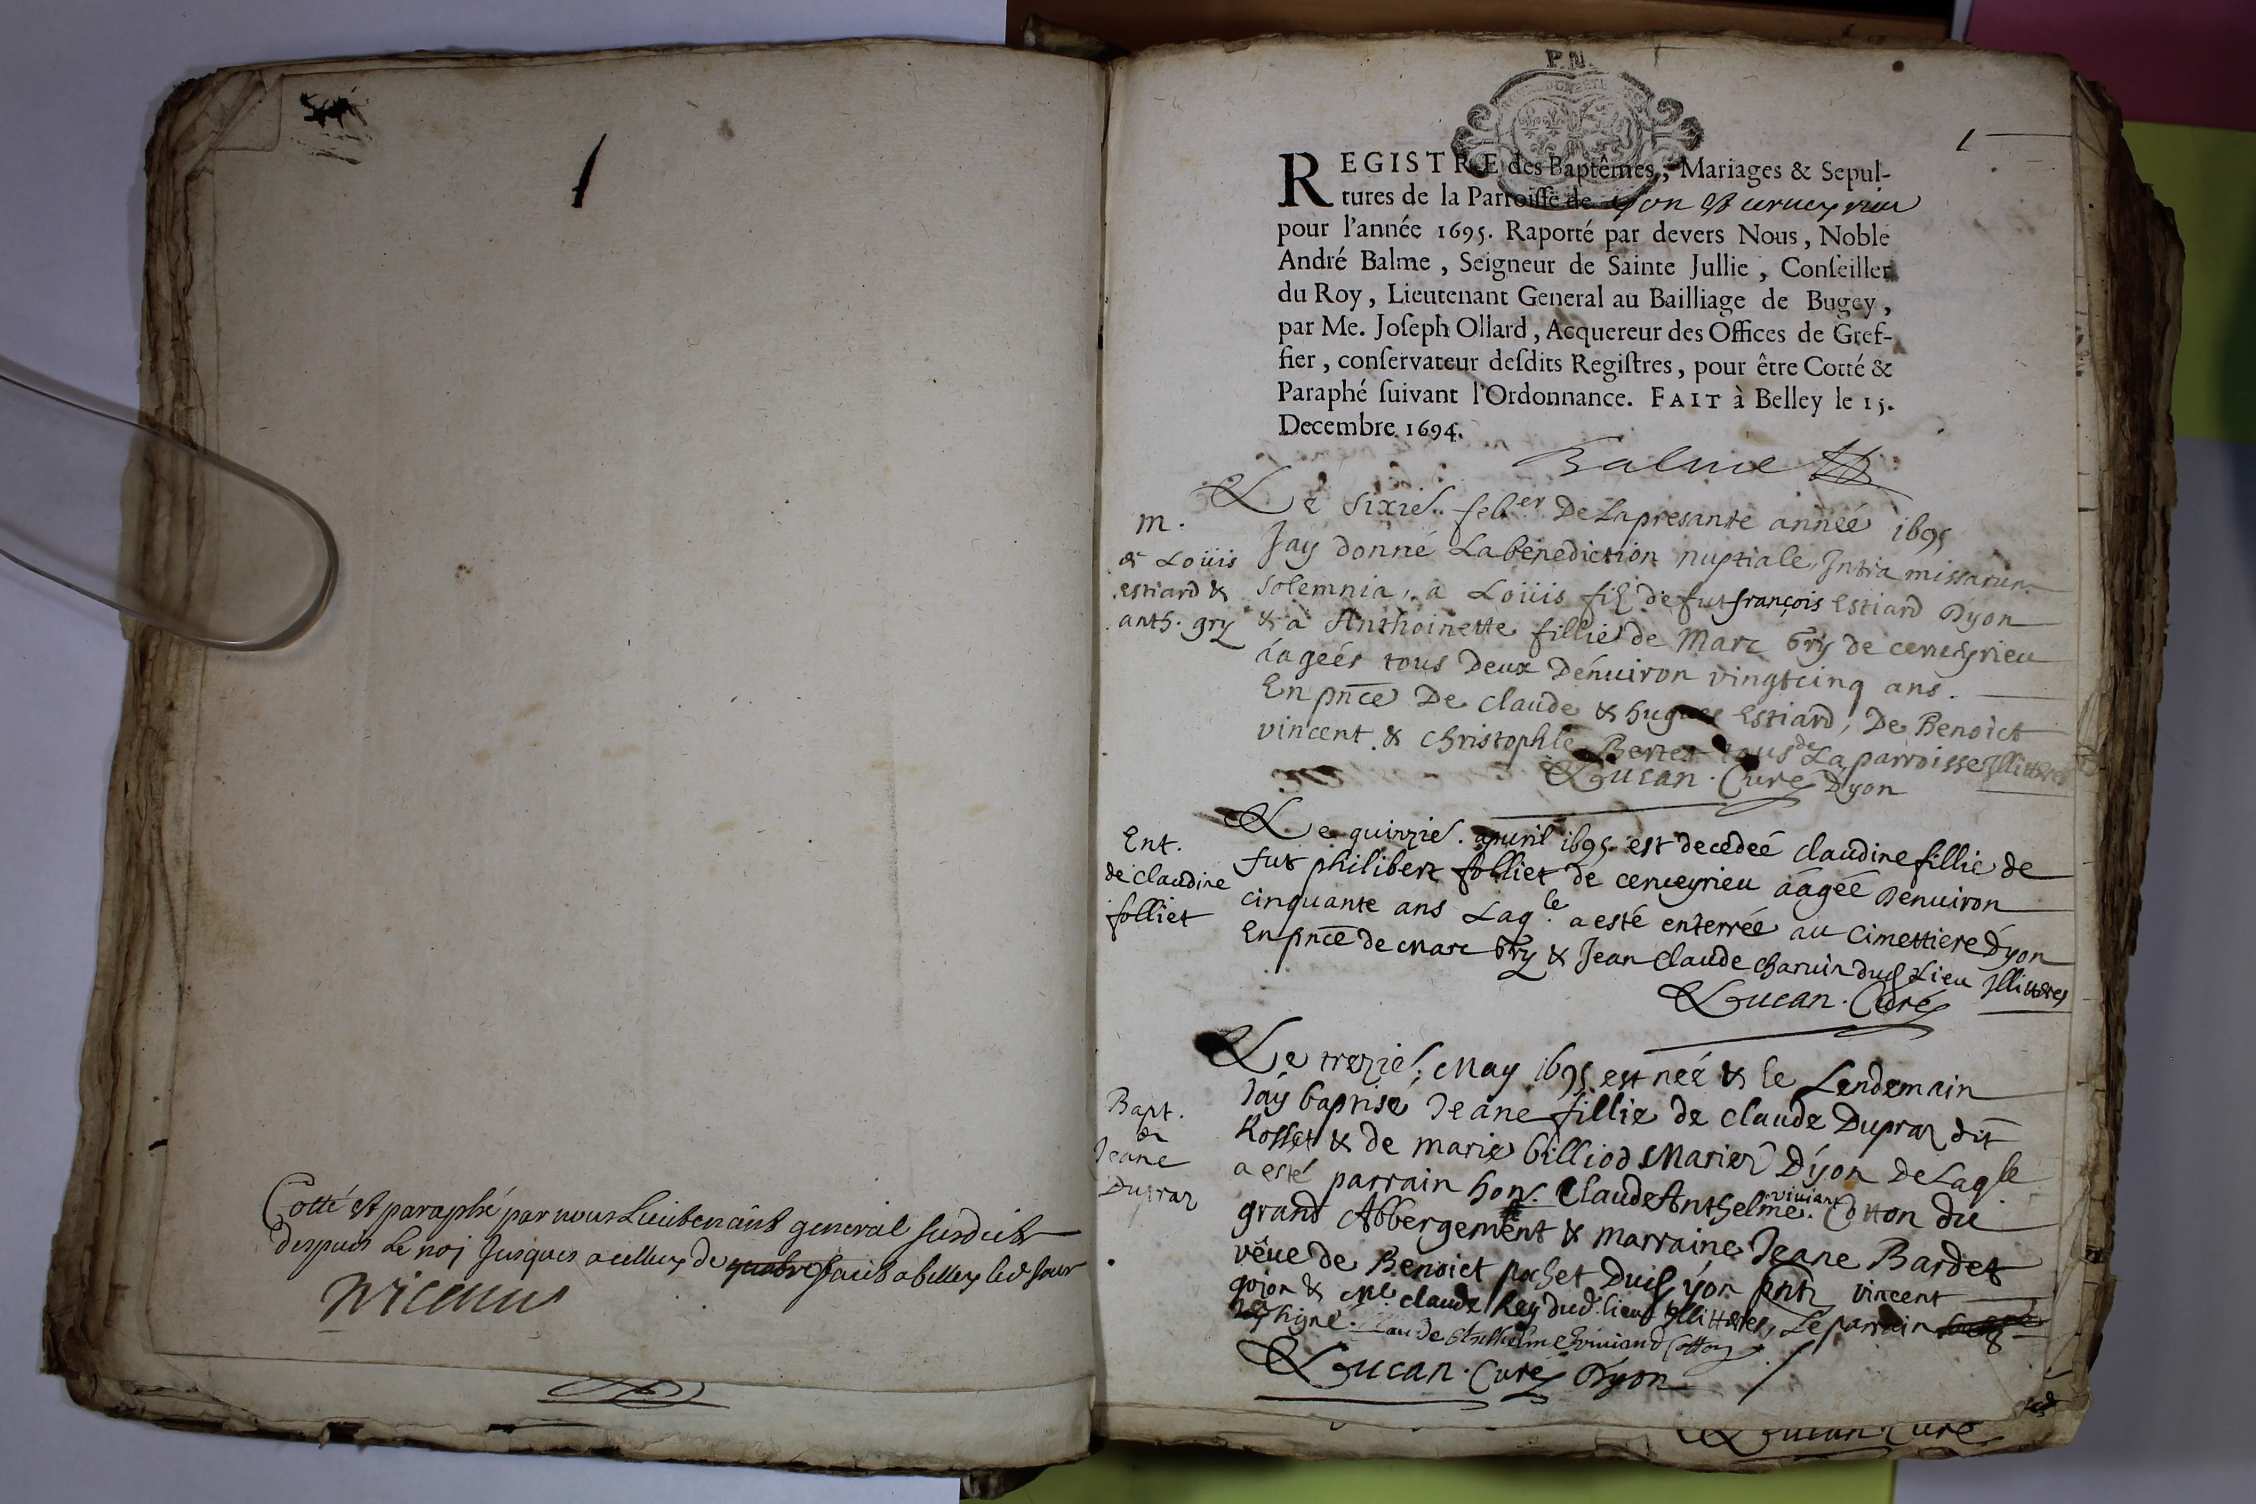 Cotté et paraphé par nous Lieutenant general susdict
despuis le no 1 jusques a celluy de faict a belley led. jour
1
REGISTRE des Baptêmes, Mariages & Sepul-
tures de la Parroisse de yon et cerueyrieu
pour l'année 1695. Raporté par devers Nous, Noble
André Balme, Seigneur de Sainte Jullie, Conseiller
du Roy, Lieutenant General au Bailliage de Bugey,
par Me. Joseph Ollard, Acquereur des Offices de Gref-
fier, conservateur desdits Registres, pour être Cotté &
Paraphé suivant l'Ordonnance. FAIT à Belley le 15.
Decembre 1694.
Balme
m.
de Loüis
estiard &
anth. gry
Le sixie. feber De La presante année 1695
Jay donné La benediction nuptiale, Intra missarum
solemnia, a Loüis filz de fut françois Estiard Dyon
& a Anthoinette fillie de Marc Gry de cerueyrieu
áageés tous Deux Dénuiron vingtcinq ans.
En pnce De claude & hugues Estiard, De Benoict
vincent & christophle Bertet tous de La parroisse Illitteres
Lucan. Curé Dyon
Ent.
de claudine
folliet
Le quinzie. apuril 1695 est decedeé claudine fillie de
fut philibert folliet de cerueyrieu áagée Denuiron
cinquante ans Laqle. a esté enterrée au cimettiere Dyon
En pnce de Marc Gry & Jean claude charuin dud Lieu Illitteres
Lucan. Curé
Bapt.
de
Jeane
Dupraz
Le trezie. May 1695 est née & le Lendemain
Jáy baptisé Jeane fillie de claude Dupraz dit
Rosset & de marie billiod Mariez Dyon de Laqle.
a esté parrain hon. Claude Anthelme viuiand Cotton du
grand Abbergement & marraine Jeane Bardet
vêue de Benoict pochet Dud yon pnts vincent
goion & Me. claude Rey dud. lieu Illitteres, Le parrain
signé. Claude Anthelme viuiand Cotton
Lucan. Curé Dyon
Lucan Curé